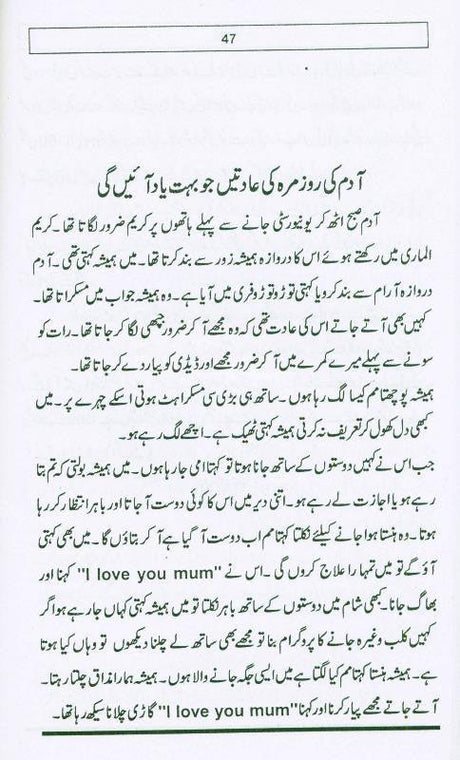 47
آدم کی روزمرہ کی عادتیں جو بہت یاد آئیں گی
آدم صبح اٹھ کر یونیورسٹی جانے سے پہلے ہاتھوں پر کریم ضرور لگاتا تھا۔ کریم
الماری میں رکھتے ہوئے اس کا دروازہ ہمیشہ زور سے بند کرتا تھا۔ میں ہمیشہ کہتی تھی۔ آدم
دروازہ آرام سے بند کرو یا کہتی توڑو توڑو فری میں آیا ہے۔ وہ ہمیشہ جواب میں مسکراتا تھا۔
کہیں بھی آتے جاتے اس کی عادت تھی کہ وہ مجھے آ کر ضرور جپھی لگا کر جاتا تھا۔ رات کو
سونے سے پہلے میرے کمرے میں آ کر ضرور مجھے اور ڈیڈی کو پیار دے کر جاتا تھا۔
ہمیشہ پوچھتا مم کیسا لگ رہا ہوں۔ ساتھ ہی بڑی سی مسکراہٹ ہوتی اسکے چہرے پر۔ میں
کبھی دل کھول کر تعریف نہ کرتی ہمیشہ کہتی ٹھیک ہے۔ اچھے لگ رہے ہو۔
جب اس نے کہیں دوستوں کے ساتھ جانا ہوتا تو کہتا امی جا رہا ہوں۔ میں ہمیشہ بولتی کہ تم بتا
رہے ہو یا اجازت لے رہے ہو۔ اتنی دیر میں اس کا کوئی دوست آ جاتا اور باہر انتظار کر رہا
ہوتا۔ وہ ہنستا ہوا جانے کیلئے نکلتا کہتا مم اب دوست آ گیا ہے آ کر بتاؤں گا۔ میں بھی کہتی
آؤ گے تو میں تمہارا علاج کروں گی۔ اس نے "I love you mum" کہنا اور
بھاگ جانا۔ کبھی شام میں دوستوں کے ساتھ باہر نکلتا تو میں ہمیشہ کہتی کہاں جا رہے ہو اگر
کہیں کلب وغیرہ جانے کا پروگرام بنا تو مجھے بھی ساتھ لے چلنا دیکھوں تو وہاں کیا ہوتا
ہے۔ ہمیشہ ہنستا کہتا مم کیا لگتا ہے میں ایسی جگہ جانے والا ہوں۔ ہمیشہ ہمارا مذاق چلتا رہتا۔
آتے جاتے مجھے پیار کرنا اور کہنا "I love you mum" گاڑی چلانا سیکھ رہا تھا۔